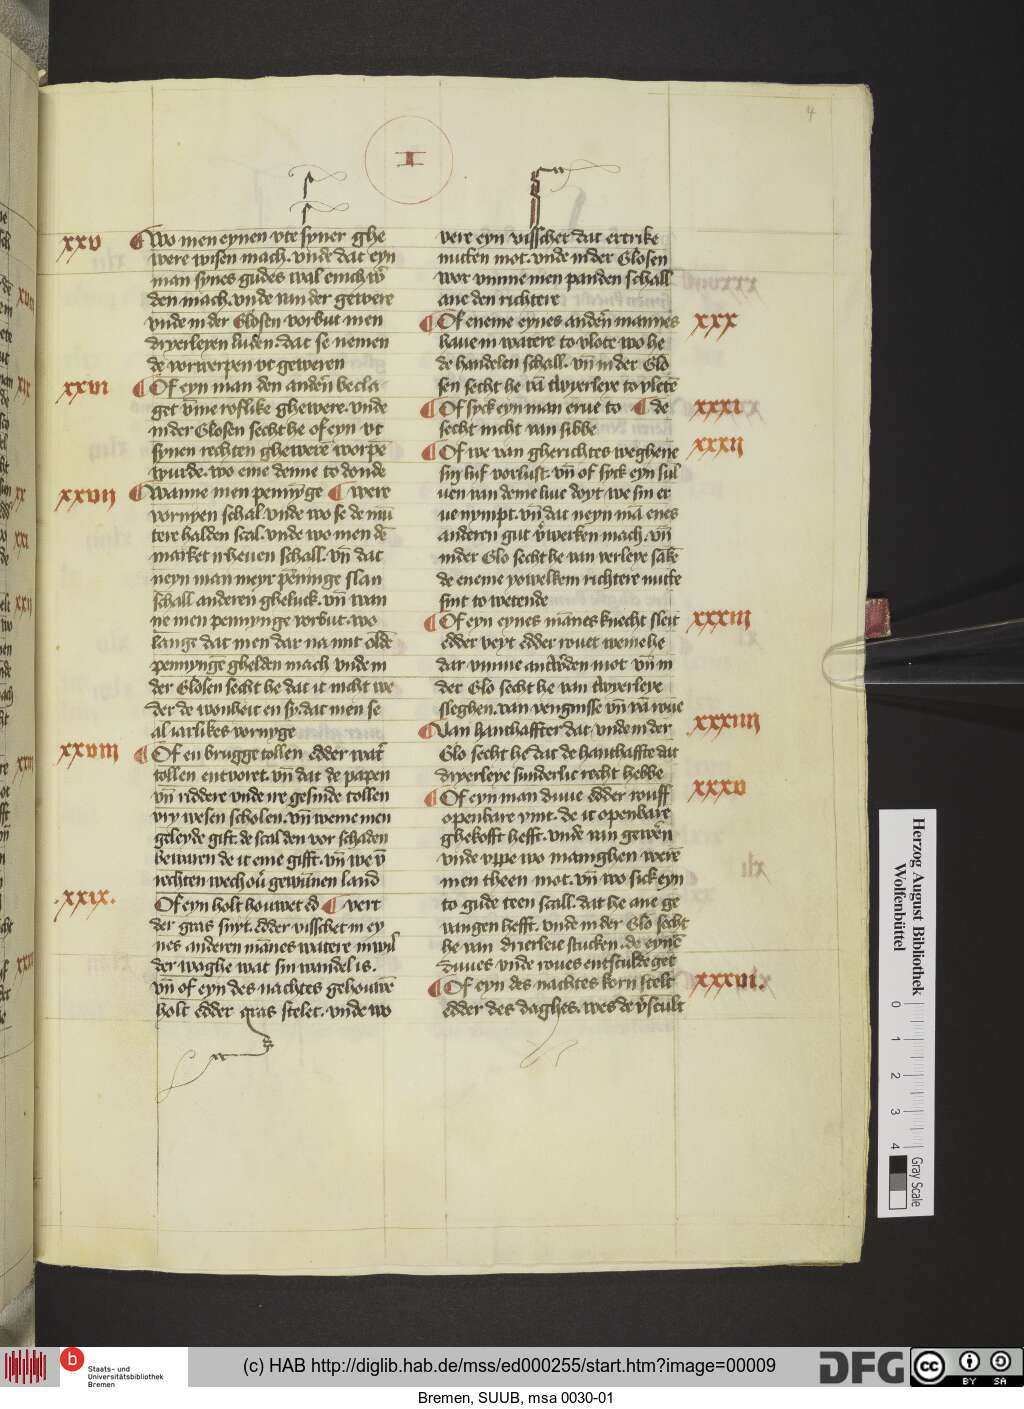 4
I
xxv
Wo men eynen vte syner ghe
were wisen mach. vnde dat eyn
man synes gudes wal enich w̄
den mach. vnde vmder gewere
vnde in der Glosen vorbut men
dryerleyen luden. dat se nemen
de vorwerpen vt geweren
xxvi
Of eyn man den andern̄ becla
get v̄me roflike ghewere. vnde
in der Glosen secht he of eyn vt
synen rechten ghewere worpē
wurde. wo eme denne to donde
xxvij
Wanne men pennȳge were
vornyen schal. vnde wo se de mū
tere halden scal. vnde wo men dē
market vrheuen schall. vn̄ dat
neyn man meyr pēninge slan
schall anderen gheluck. vn̄ wan
ne men pennynge vorbut. wo
lange dat men dar na mit oldē
pennynge ghelden mach vnde in
der Glosen secht he dat it nicht we
der de wonheit en sy. dat men se
al iarlikes vornyge
xxviij
Of en brugge tollen edder wat̄
tollen entvoret. vn̄ dat de papen
vn̄ riddere vnde ire gesinde tollen
vry wesen scholen. vn̄ weme men
geleyde gift. de scal den vor schaden
bewaren de it eme gifft. vn̄ we v̄
rechten wech ou̓ gewūnen land
.xxix.
Of eyn holt houwet ed vert
der gras snyt. edder visschet in ey
nes anderen mānes watere in wil
der waghe wat sin wandel is.
vn̄ of eyn des nachtes gehouwē
holt edder gras stelet. vnde wo
vere eyn visscher dat ertrike
nutten mot. vnde in der Glosen
wor vmme men panden schall
ane den richtere
Of eneme eynes anden̄ mannes xxx
haue in watere to vlote wo he
de handelen schall. vn̄ in der Glo
sen secht he vā twyerleye to vletē
Of syck eyn man erue to de xxxi
secht nicht van sibbe
Of we van gherichtes weghene xxxij
sin lif vorlust. vn̄ of syck eyn sul
uen van deme liue doyt we sin er
ue nympt. vn̄ dat neyn mā enes
anderen gut v̓werken mach. vn̄
in der Glo secht he van verleye sakē
de eneme yowelkem richtere nutte
sint to wetende
Of eyn eynes mānes knecht sleit xxxiij
edder veyt edder rouet weme he
dar vmme antw̄den mot vn̄ in
der Glo secht he van twyerleye
sleghen. van vengnisse vn̄ vā roue
Van hanthaffter dat. vnde in der xxxiiij
Glo secht he dat de hanthaffte dat
dryerleye sunderlic recht hebbe
Of eyn man duue edder rouff xxxv
openbare vint. de it openbare
ghekofft hefft. vnde vm gewēr
vnde vppe wo manighen werē
men theen mot. vn̄ wo sick eyn
to gude teen scall. dat he ane ge
vangen hefft. vnde in der Glo secht
he van drierleie stucken. de eynē
duues vnde roues entsculdeget
Of eyn des nachtes korn stelt xxxvi.
edder des daghes. wes de v̓scult
Herzog August Bibliothek
Wolfenbüttel
0 1 2 3 4
Gray Scale
b Staats- und
Universitätsbibliothek
Bremen
(c) HAB http://diglib.hab.de/mss/ed000255/start.htm?image=00009
DFG
cc BY SA
Bremen, SUUB, msa 0030-01